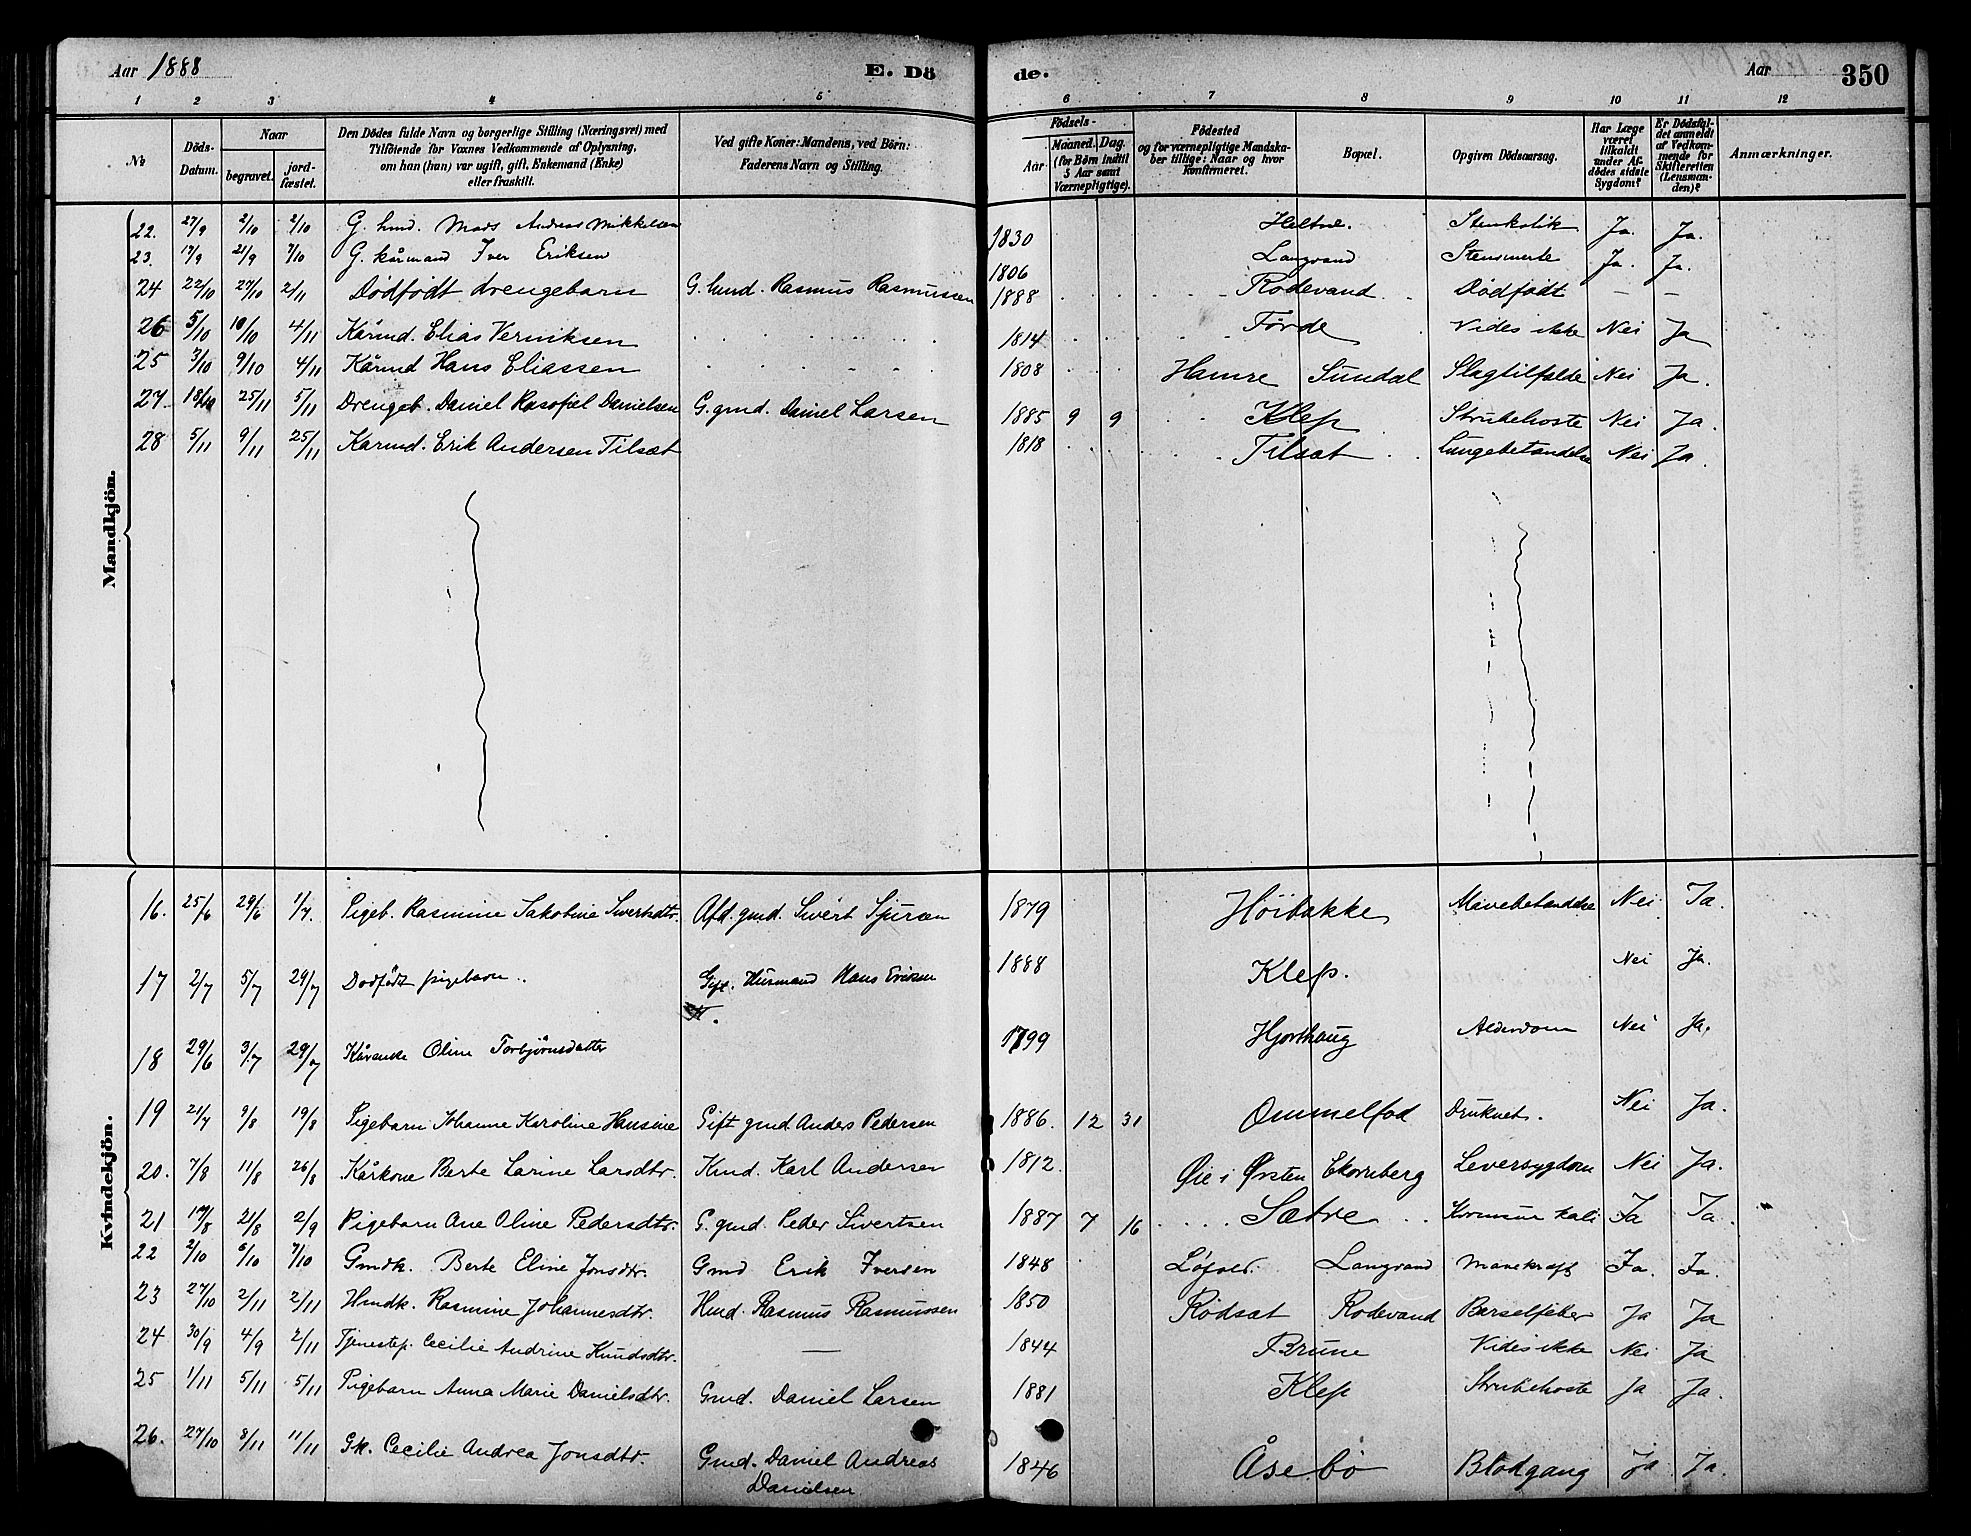 Aar 1888 E. Dö de. Aar 350
1 2 3 4 5 6 7 8 9 10 11 12
No
Döds-Datum.
Naar
begravet.
jord-fæstet.
Den Dödes fulde Navn og borgerlige Stilling (Næringsvei) med
Tilföiende for Voxnes Vedkommende af Oplysning,
om han (hun) var ugift, gift, Enkemand (Enke)
eller fraskilt.
Ved gifte Koner: Mandens, ved Börn:
Faderens Navn og Stilling.
Födsels-
Aar
Maaned. Dag.
(for Börn indtil
5 Aar samt
Værnepligtige).
Födested
og for værnepligtige Mandska-
ber tillige: Naar og hvor
konfirmeret.
Bopæl.
Opgiven Dödsaarsag.
Har Læge
været
tilkaldt
under Af-
dödes sidste
Sygdom?
Er Dödsfal-
det anmeldt
af Vedkom-
mende for
Skifteretten
(Lensman-
den)?
Anmærkninger.
Mandkjön.
22. 27/9 2/10 2/10 G. hmd. Mads Andreas Mikkelsen 1830 Heltne. Stenkolik Ja. Ja.
23. 17/9 21/9 7/10 G. kårmand Iver Eriksen 1806 Langvand Stensmerte Ja. Ja.
24 22/10 27/10 2/11 Dødfødt drengebarn G. hmd. Rasmus Rasmussen 1888 Rodevand Dødfødt — —
26 5/10 10/10 4/11 Kårmd. Elias Verniksen 1814 Førde Vides ikke Nei Ja
25 3/10 9/10 4/11 Kårmd Hans Eliassen 1808 Hamre Sundal Slagtilfælde Nei Ja.
27. 18/10 25/11 5/11 Drengeb. Daniel Danielsen G. gmd. Daniel Larsen 1885 9 9 Klep Strubehoste Nei Ja.
28 5/11 9/11 25/11 Karmd. Erik Andersen Tilsæt 1818 Tilsæt Lungebetændelse Nei Ja.
Kvindekjön.
16. 25/6 29/6 1/7. Pigeb. Rasmine Jakobine Sivertsdtr. Afd. gmd. Sivert 1879 Høibakke Mavebetændelse Nei Ja.
17 2/7 5/7 29/7 Dødfødt pigebarn. Gift. Husmand Hans Eriksen 1888 Klep. Nei Ja.
18 29/6 3/7 29/7 Kårenke Oline Torbjørnsdatter 1799 Hjorthaug Alderdom Nei Ja.
19 21/7 9/8 19/8 Pigebarn Johanne Karoline Hansine Gift gmd Anders Pedersen 1886. 12 31 Ommelfod Druknet. Nei Ja.
20. 7/8 11/8 26/8 Kårkone Berte Larine Larsdtr. Kmd. Karl Andersen 1812. Øie i Ørsten Ekornberg Leversygdom Nei Ja.
21 17/8 21/8 2/9 Pigebarn Ane Oline Pedersdtr. G. gmd. Peder Sivertsen 1887 7 16 Sætre Ja Ja.
22 2/10 6/10 7/10 Gmdk. Berte Eline Jonsdtr. Gmd Erik Iversen 1848 Løfold. Langvand Mavekræft Ja. Ja.
23 27/10 2/11 2/11 Hmdk. Rasmine Johannesdtr. Hmd. Rasmus Rasmussen 1850 Rødsæt Rodevand Barselfeber Ja Ja
24 30/9 4/9 2/11 Tjenestep. Cecilie Andrine Knudsdtr. — 1844 Brune Vides ikke Nei Ja
25 1/11 5/11 5/11 Pigebarn Anna Marie Danielsdtr. Gmd. Daniel Larsen 1881 Klep Strubehoste Ja Ja.
26. 27/10 8/11 11/11 Gk. Cecilie Andrea Jonsdtr. Gmd. Daniel Andreas 1846 Åsebø Blodgang Ja Ja.
Danielsen